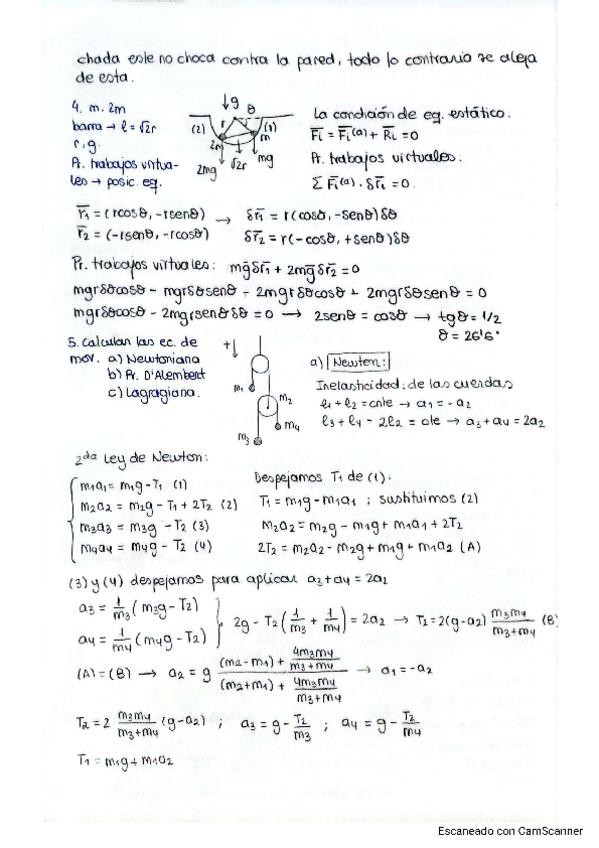 chada este no choca contra la pared, todo lo contrario se aleja
de esta.
4. m. 2m
barra → l = √2r
r, g.
Pr. trabajos virtua-
les → posic. eq.
↓g θ
(2) r (1)
2m m
2mg √2r mg
La condición de eq. estático.
F̄i = F̄i⁽ᵃ⁾ + R̄i = 0
Pr. trabajos virtuales.
Σ F̄i⁽ᵃ⁾ · δr̄i = 0.
r̄1 = (rcosθ, -rsenθ) → δr̄1 = r(cosθ, -senθ)δθ
r̄2 = (-rsenθ, -rcosθ) δr̄2 = r(-cosθ, +senθ)δθ
Pr. trabajos virtuales: mḡδr̄1 + 2mḡδr̄2 = 0
mgrδθcosθ - mgrδθsenθ - 2mgrδθcosθ + 2mgrδθsenθ = 0
mgrδθcosθ - 2mgrsenθδθ = 0 → 2senθ = cosθ → tgθ = 1/2
θ = 26'6°
5. Calcular las ec. de
mov. a) Newtoniana
b) Pr. D'Alembert
c) Lagragiana.
+↓
m1
m2
m4
m3
a) Newton:
Inelasticidad: de las cuerdas
l1 + l2 = cnte → a1 = -a2
l3 + l4 - 2l2 = cte → a3 + a4 = 2a2
2da Ley de Newton:
m1a1 = m1g - T1 (1)
m2a2 = m2g - T1 + 2T2 (2)
m3a3 = m3g - T2 (3)
m4a4 = m4g - T2 (4)
Despejamos T1 de (1):
T1 = m1g - m1a1 ; sustituimos (2)
m2a2 = m2g - m1g + m1a1 + 2T2
2T2 = m2a2 - m2g + m1g + m1a2 (A)
(3) y (4) despejamos para aplicar a3 + a4 = 2a2
a3 = 1/m3 (m3g - T2)
a4 = 1/m4 (m4g - T2)
2g - T2 (1/m3 + 1/m4) = 2a2 → T2 = 2(g - a2) m3m4/(m3+m4) (B)
(A) = (B) → a2 = g ((m2 - m1) + 4m3m4/(m3+m4))/((m2+m1) + 4m3m4/(m3+m4)) → a1 = -a2
T2 = 2 m3m4/(m3+m4) (g - a2) ; a3 = g - T2/m3 ; a4 = g - T2/m4
T1 = m1g + m1a2
Escaneado con CamScanner